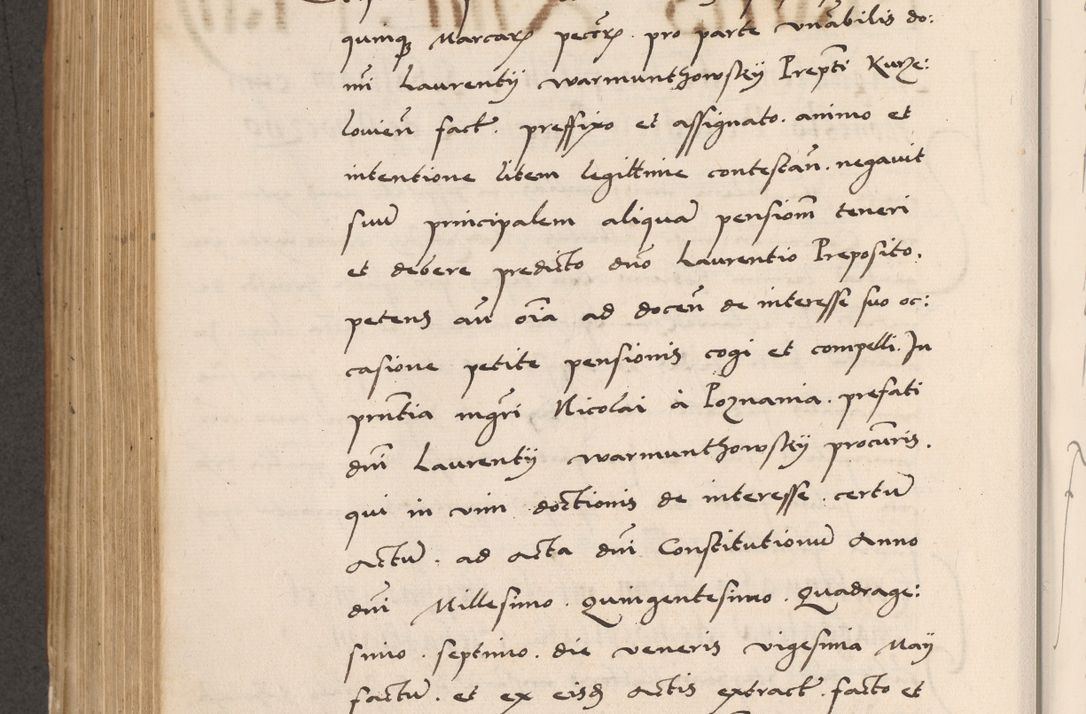 qumq Marcarz pecorz. pro parte venabilis do:
mi Laurentij Warmunthowskij Prepti Kurze:
lovien fact. preffixo et assignato. animo et
intentione litem legittime contestan. negavit
suu principalem aliqua pensiom teneri
et debere predicto dno Laurentio Preposito,
petens au oia ad docen de interesse suo oc:
casione petite pensionis cogi et compelli. In
pntia mgri Nicolai à Poznania. prefati
dni Laurentij Warmunthowskij procuris.
qui in vim doctionis de interesse. certu
actu. ad acta dni Constitutionu Anno
dni Millesimo. Quingentesimo. Quadrage:
simo. septimo. die veneris vigesima Maij
factu. et ex eisd actis extract. facto et